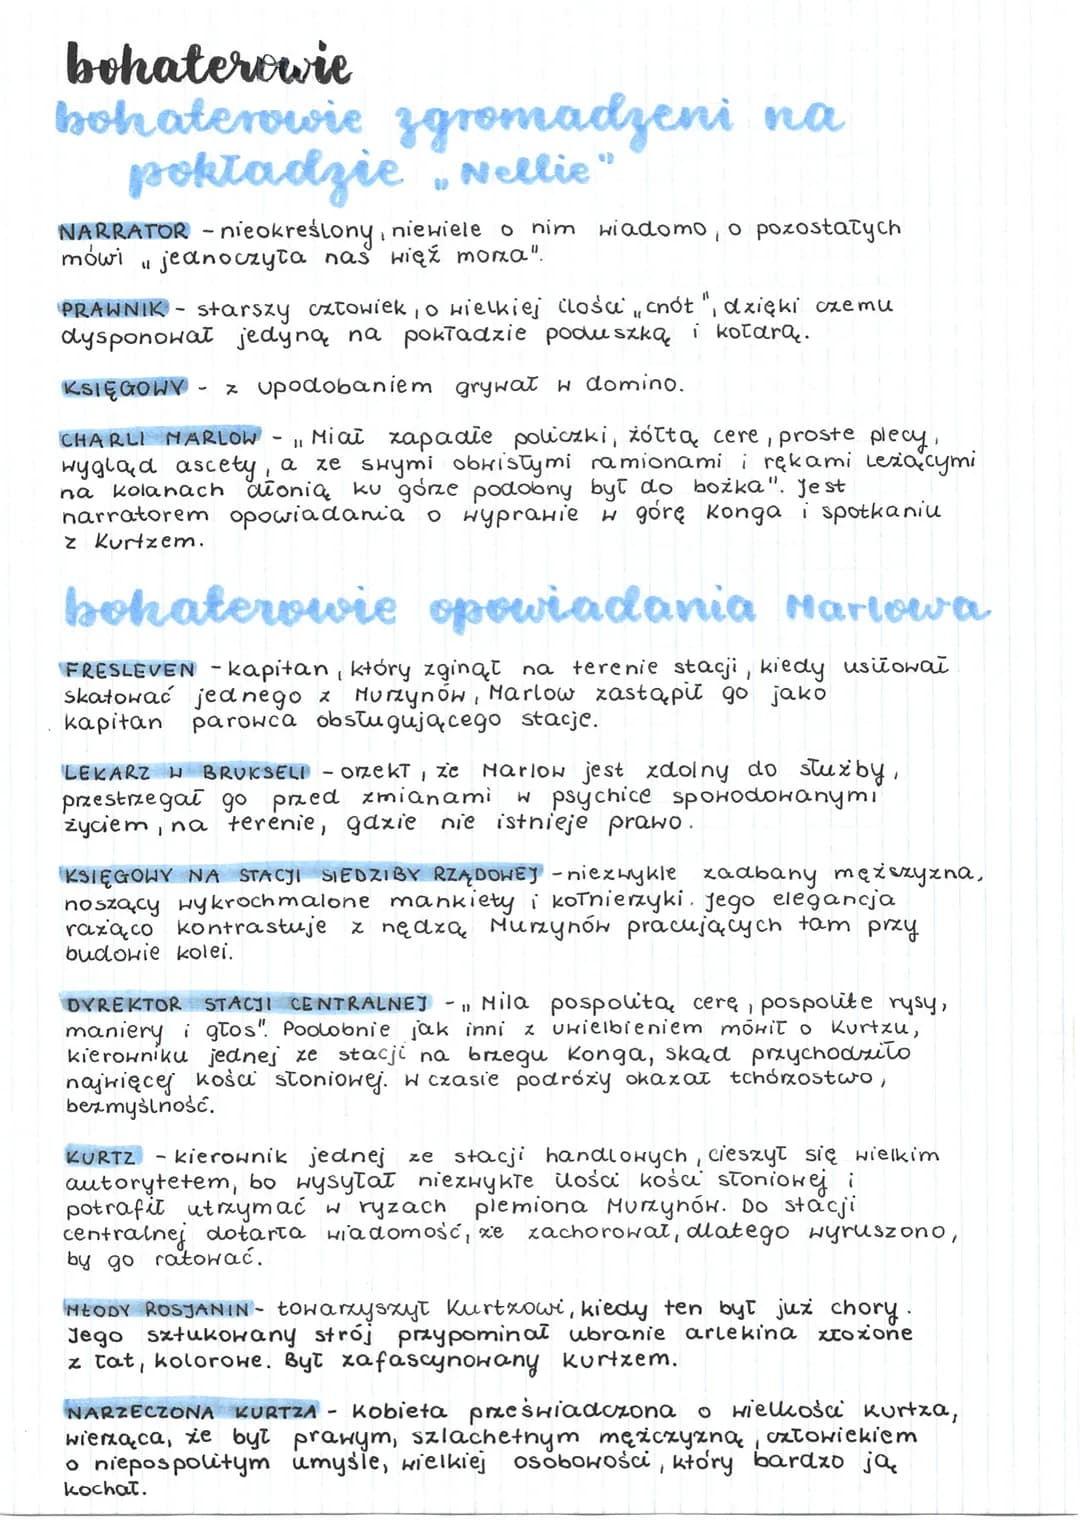 bohaterowie
bohaterowie zgromadzeni na
pokładzie „Nellie"
NARRATOR - nieokreślony, niewiele o nim wiadomo, o pozostałych
mówi „jednoczyła nas więź morza".
PRAWNIK - starszy człowiek, o wielkiej ilości „cnót", dzięki czemu
dysponował jedyną na pokładzie poduszką i kołdrą.
KSIĘGOWY - z upodobaniem grywał w domino.
CHARLI MARLOW - „Miał zapadłe policzki, żółtą cerę, proste plecy,
wygląd ascety, a ze swymi obwisłymi ramionami i rękami leżącymi
na kolanach dłonią ku górze podobny był do bożka". Jest
narratorem opowiadania o wyprawie w górę Konga i spotkaniu
z Kurtzem.
bohaterowie opowiadania Marlowa
FRESLEVEN - kapitan, który zginął na terenie stacji, kiedy usiłował
skatować jednego z Murzynów, Marlow zastąpił go jako
kapitan parowca obsługującego stacje.
LEKARZ W BRUKSELI - orzekł, że Marlow jest zdolny do służby,
przestrzegał go przed zmianami w psychice spowodowanymi
życiem, na terenie, gdzie nie istnieje prawo.
KSIĘGOWY NA STACJI SIEDZIBY RZĄDOWEJ - niezwykle zadbany mężzyzna,
noszący wykrochmalone mankiety i kołnierzyki. Jego elegancja
rażąco kontrastuje z nędzą Murzynów pracujących tam przy
budowie kolei.
DYREKTOR STACJI CENTRALNEJ - „Mila pospolitą cerę, pospolite rysy,
maniery i głos". Podobnie jak inni z uwielbieniem mówił o Kurtzu,
kierowniku jednej ze stacji na brzegu Konga, skąd przychodziło
najwięcej kości słoniowej. W czasie podróży okazał tchórzostwo,
bezmyślność.
KURTZ - kierownik jednej ze stacji handlowych, cieszył się wielkim
autorytetem, bo wysyłał niezwykłe ilości kości słoniowej i
potrafił utrzymać w ryzach plemiona Murzynów. Do stacji
centralnej dotarła wiadomość, że zachorował, dlatego wyruszono,
by go ratować.
MŁODY ROSJANIN - towarzyszył Kurtzowi, kiedy ten był już chory.
Jego sztukowany strój przypominał ubranie arlekina złożone
z łat, kolorowe. Był zafascynowany Kurtzem.
NARZECZONA KURTZA - Kobieta przeświadczona o wielkości Kurtza,
wierząca, że był prawym, szlachetnym mężczyzną, człowiekiem
o niepospolitym umyśle, wielkiej osobowości, który bardzo ją
kochał.